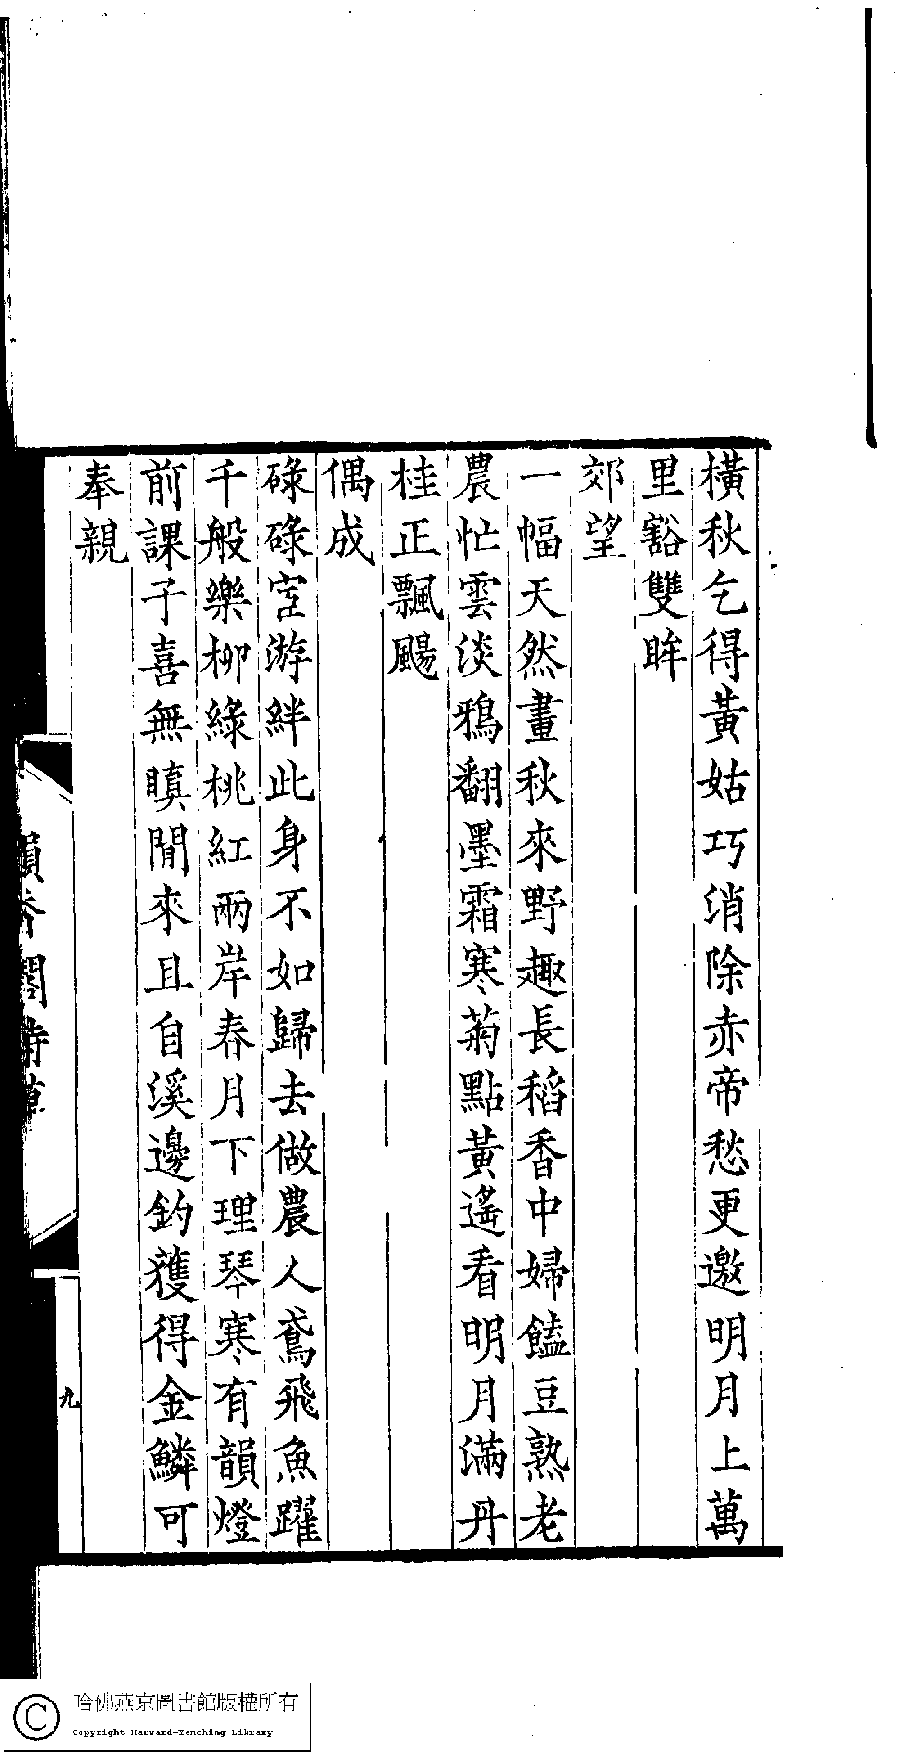 橫秋乞得黃姑巧消除赤帝愁更邀明月上萬
里豁雙眸
郊望
一幅天然畫秋來野趣長稻香中婦饁豆熟老
農忙雲淡鴉翻墨霜寒菊點黃遙看明月滿丹
桂正飄颺
偶成
碌碌宦游絆此身不如歸去做農人鳶飛魚躍
千般樂柳綠桃紅兩岸春月下理琴寒有韻燈
前課子喜無瞋閒來且自溪邊釣獲得金鱗可
奉親
韻香閣詩草
九
哈佛燕京圖書館版權所有
Copyright Harvard-Yenching Library